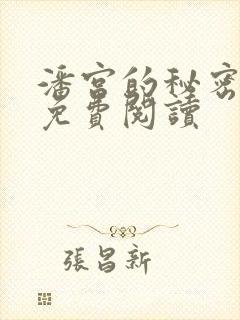 潘宮的秘密
免費閱讀
張昌新